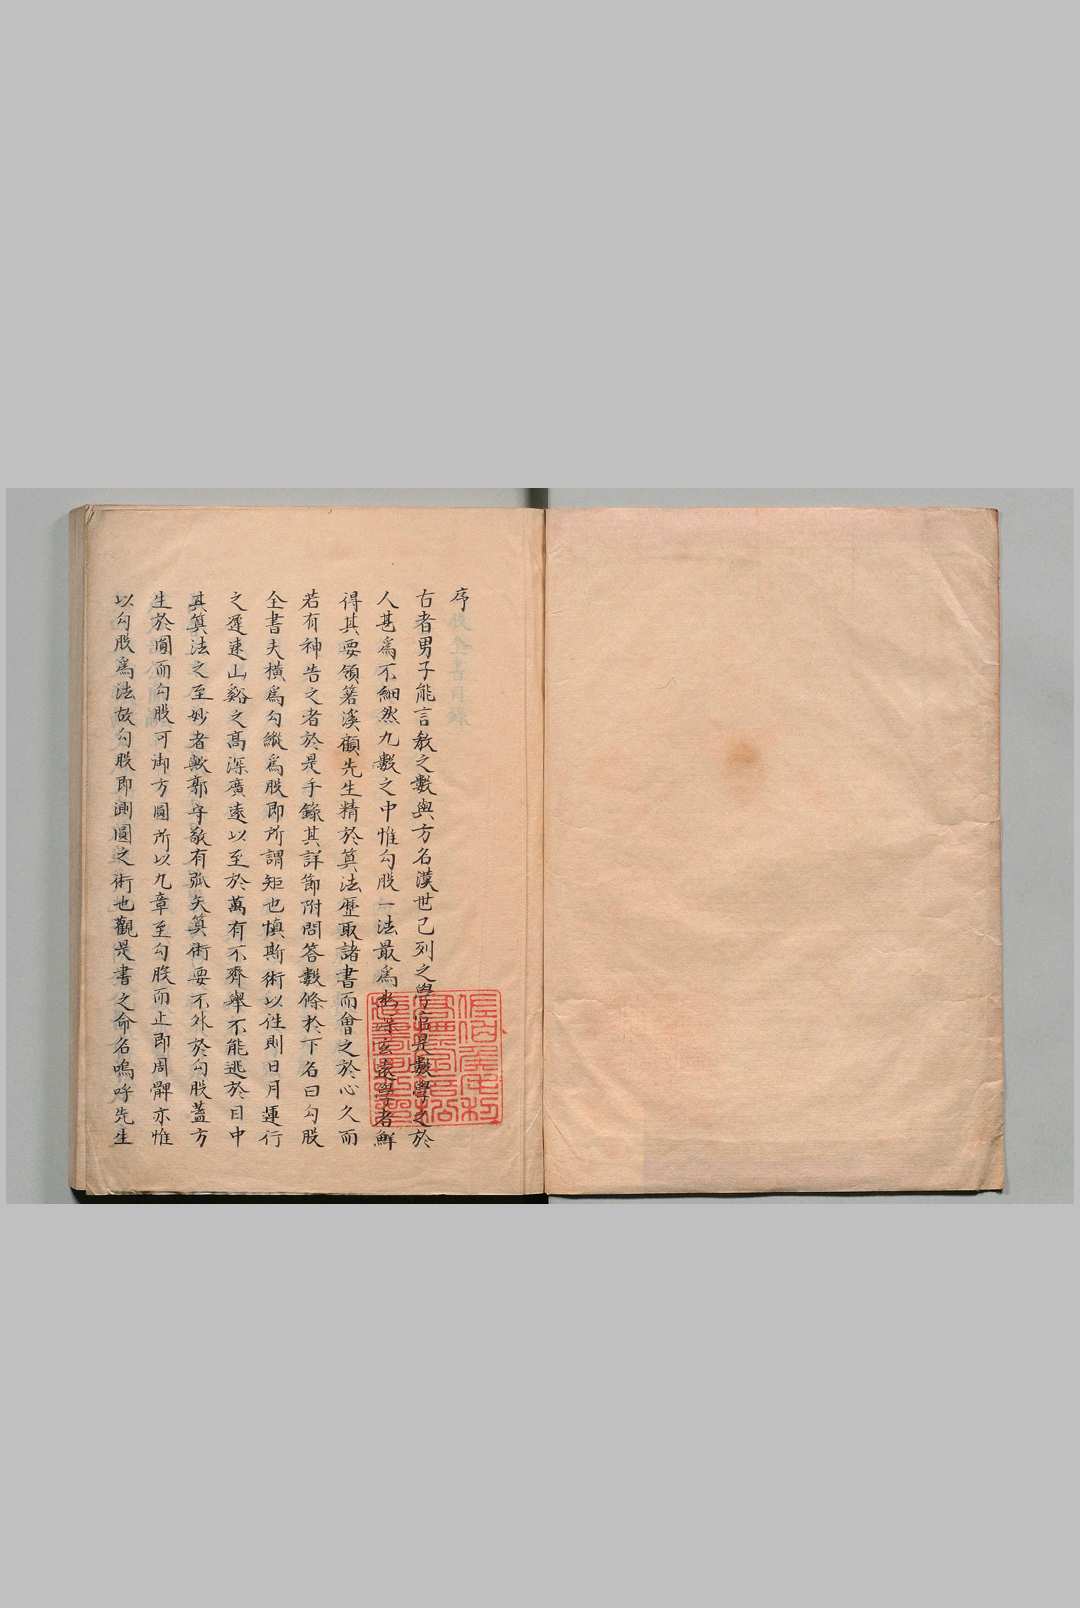 序
古者男子能言教之數與方名漢世已列之學官是數學之於
人甚爲不細然九數之中惟勾股一法最爲幽深玄遠學者鮮
得其要領箬溪顧先生精於算法歷取諸書而會之於心久而
若有神告之者於是手錄其詳節附問答數條於下名曰勾股
全書夫橫爲勾縱爲股即所謂矩也慎斯術以徃則日月運行
之遲速山谿之高深廣遠以至於萬有不齊舉不能逃於目中
其算法之至妙者歟郭守敬有弧矢算術要不外於勾股蓋方
生於圓而勾股可御方圓所以九章至勾股而止即周髀亦惟
以勾股爲法故勾股即測圓之術也觀是書之命名嗚呼先生
佐伯侯毛利
高標字培松
藏書畫之印